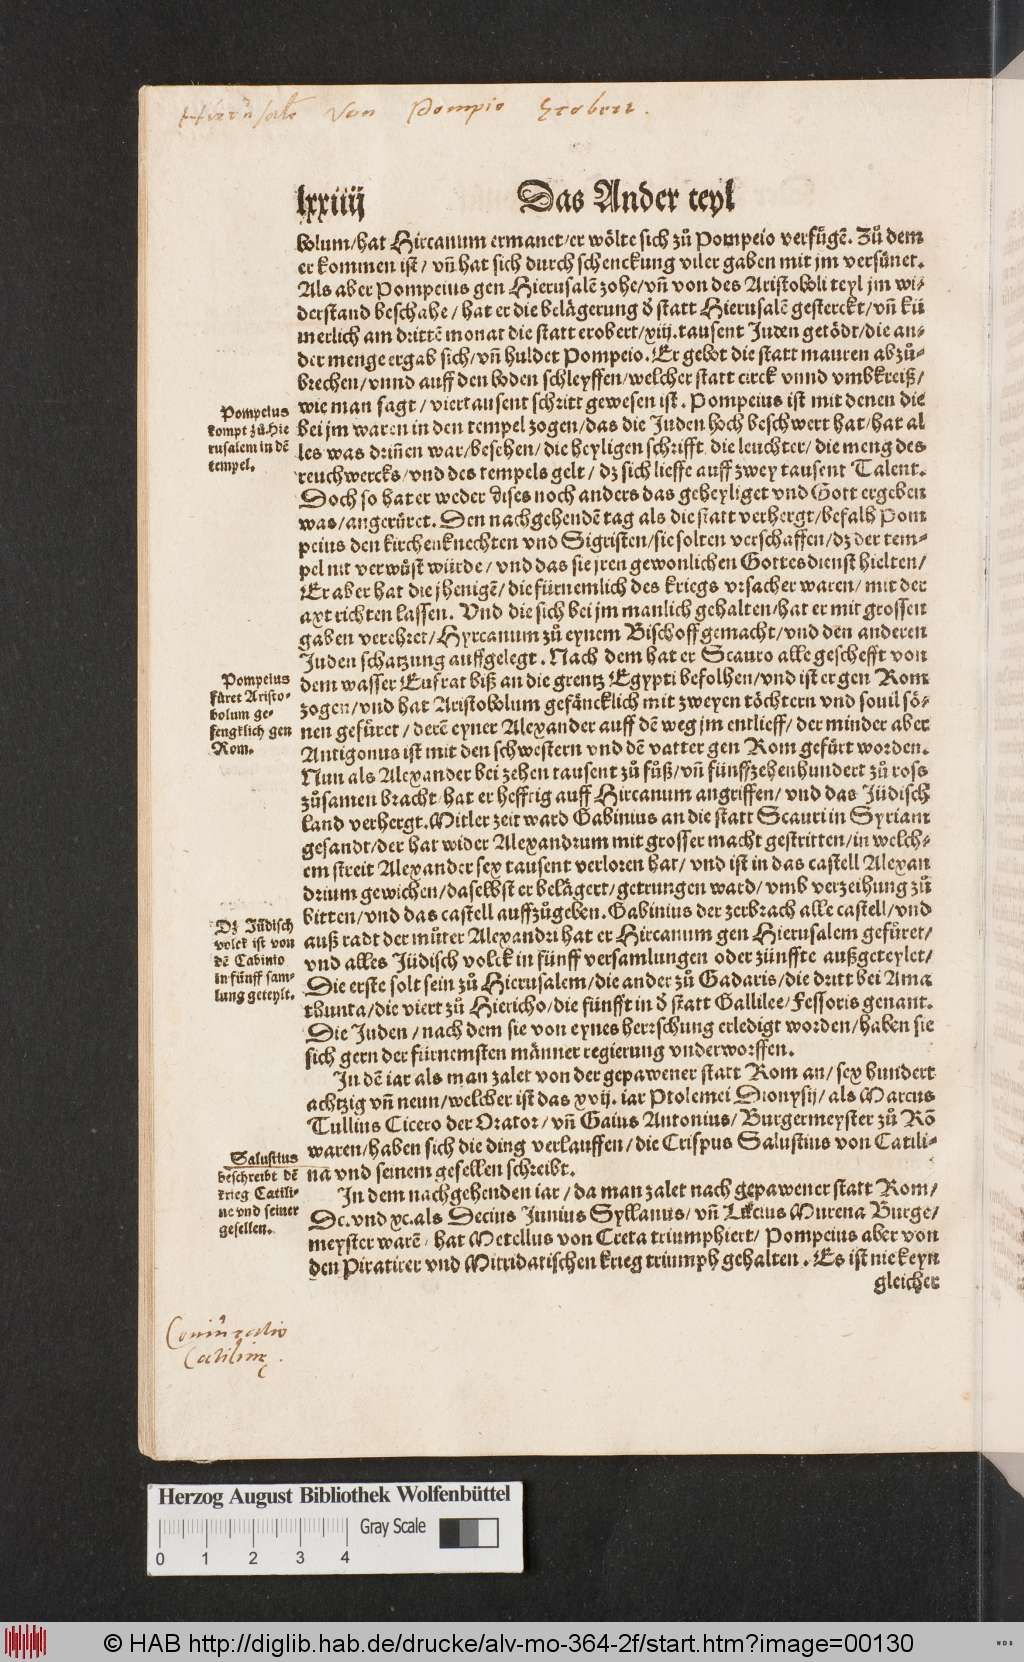 Hierusalē Von Pompio Erobert.
lxxiiij
Das Ander teyl
bolum/hat Hircanum ermanet/er wölte sich zů Pompeio verfügē. Zů dem
er kommen ist/ vn̄ hat sich durch schenckung viler gaben mit jm versünet.
Als aber Pompeius gen Hierusalē zohe/vn̄ von des Aristoboli teyl jm wi-
derstand beschahe/ hat er die belägerung d̕ statt Hierusalē gesterckt/vn̄ kü
merlich am drittē monat die statt erobert/xiij.tausent Juden getödt/die an-
der menge ergab sich/vn̄ huldet Pompeio. Er gebot die statt mauren abzů-
brechen/vnnd auff den boden schleyffen/welcher statt circk vnnd vmbkreiß/
wie man sagt/ viertausent schritt gewesen ist. Pompeius ist mit denen die
bei jm waren in den tempel zogen/das die Juden hoch beschwert hat/hat al
les was drin̄en war/besehen/die heyligen schrifft, die leuchter/die meng des
reuchwercks/vnd des tempels gelt/ dz sich lieffe auff zwey tausent Talent.
Doch so hat er weder dises noch anders das geheyliget vnd Gott ergeben
was/angerüret. Den nachgehendē tag als die statt verhergt/befalh Pom
peius den kirchenknechten vnd Sigristen/sie solten verschaffen/dz der tem-
pel nit verwůst würde/ vnd das sie jren gewonlichen Gottesdienst hielten/
Er aber hat die jhenigē/ die fürnemlich des kriegs vrsacher waren/ mit der
axt richten lassen. Vnd die sich bei jm manlich gehalten/hat er mit grossen
gaben verehret/Hyrcanum zů eynem Bischoff gemacht/vnd den anderen
Juden schatzung auffgelegt. Nach dem hat er Scauro alle geschefft von
dem wasser Eufrat biß an die grentz Egypti befolhen/vnd ist er gen Rom
zogen/vnd hat Aristobolum gefäncklich mit zweyen töchtern vnd souil sö-
nen gefüret/ derē eyner Alexander auff dē weg jm entlieff/ der minder aber
Antigonus ist mit den schwestern vnd dē vatter gen Rom gefürt worden.
Nun als Alexander bei zehen tausent zů fůß/vn̄ fünffzehenhundert zů ross
zůsamen bracht/hat er hefftig auff Hircanum angriffen/ vnd das Jüdisch
land verhergt.Mitler zeit ward Gabinius an die statt Scauri in Syriam
gesandt/der hat wider Alexandrum mit grosser macht gestritten/in welch-
em streit Alexander sex tausent verloren hat/ vnd ist in das castell Alexan
drium gewichen/daselbst er belägert/getrungen ward/vmb verzeihung zů
bitten/vnd das castell auffzůgeben. Gabinius der zerbrach alle castell/vnd
auß radt der můter Alexandri hat er Hircanum gen Hierusalem gefüret/
vnd alles Jüdisch volck in fünff versamlungen oder zünffte außgeteylet/
Die erste solt sein zů Hierusalem/die ander zů Gadaris/die dritt bei Ama
thunta/die viert zů Hiericho/die fünfft in d̕ statt Gallilee/Fessoris genant.
Die Juden/nach dem sie von eynes herrschung erledigt worden/haben sie
sich gern der fürnemsten männer regierung vnderworffen.
In dē iar als man zalet von der gepawener statt Rom an/ sex hundert
achtzig vn̄ neun/welcher ist das xvij. iar Ptolemei Dionysij/ als Marcus
Tullius Cicero der Orator/ vn̄ Gaius Antonius/ Burgermeyster zů Rō
waren/haben sich die ding verlauffen/die Crispus Salustius von Catili-
na vnd seinem gesellen schreibt.
In dem nachgehenden iar/ da man zalet nach gepawener statt Rom/
Dc.vnd xc.als Decius Junius Syllanus/ vn̄ Lucius Murena Burge/
meyster warē/ hat Metellus von Creta triumphiert/ Pompeius aber von
den Piratirer vnd Mitridatischen krieg triumph gehalten. Es ist nie keyn
gleicher
Pompeius
kompt zů Hie
rusalem in dē
tempel.
Pompeius
füret Aristo-
bolum ge-
fengklich gen
Rom.
Dz Jüdisch
volck ist von
dē Cabinio
in fünff sam-
lung geteylt.
Salustius
beschreibt dē
krieg Catili-
ne vnd seiner
gesellen.
Coniuratio
Catilinę.
Herzog August Bibliothek Wolfenbüttel
Gray Scale
0 1 2 3 4
© HAB http://diglib.hab.de/drucke/alv-mo-364-2f/start.htm?image=00130